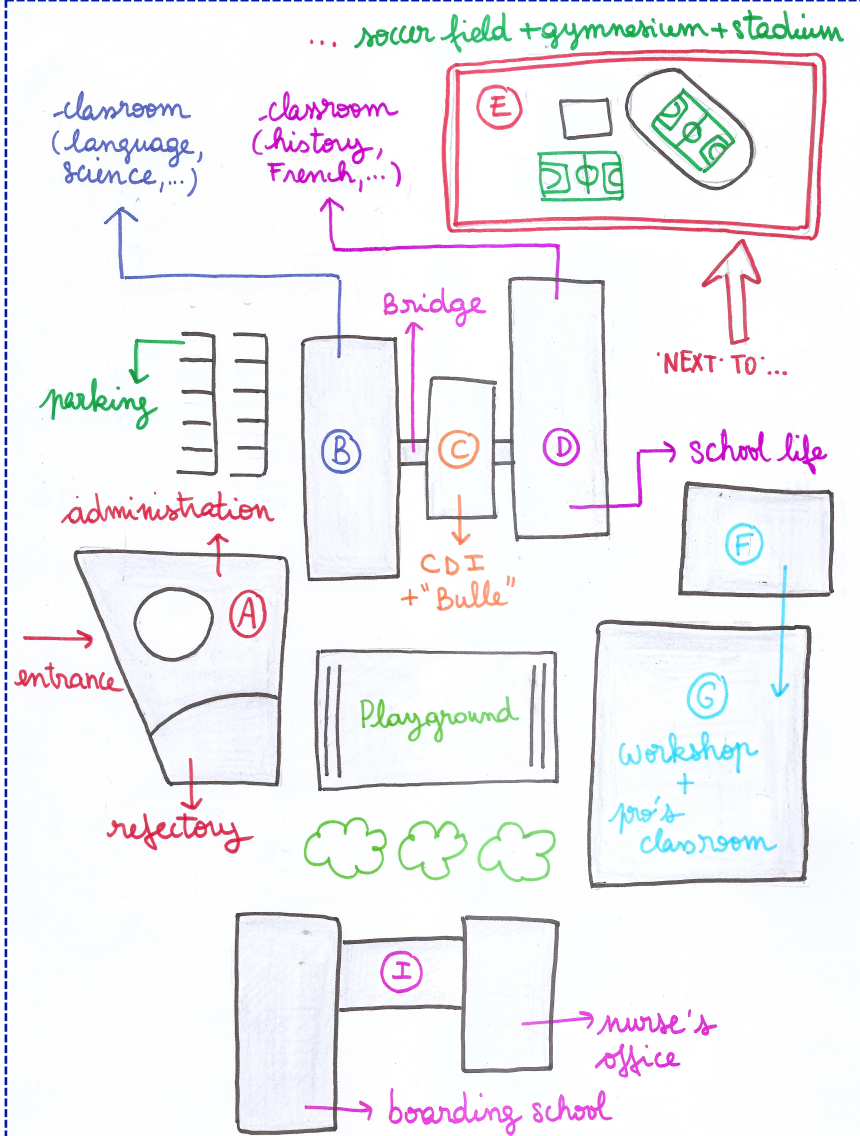 ... soccer field + gymnasium + stadium
E
classroom
(language,
science,...)
classroom
(history,
French,...)
Bridge
"NEXT TO"...
parking
B
C
D
school life
administration
CDI
+ "Bulle"
F
A
entrance
Playground
G
workshop
+
pro's
classroom
refectory
I
nurse's
office
boarding school